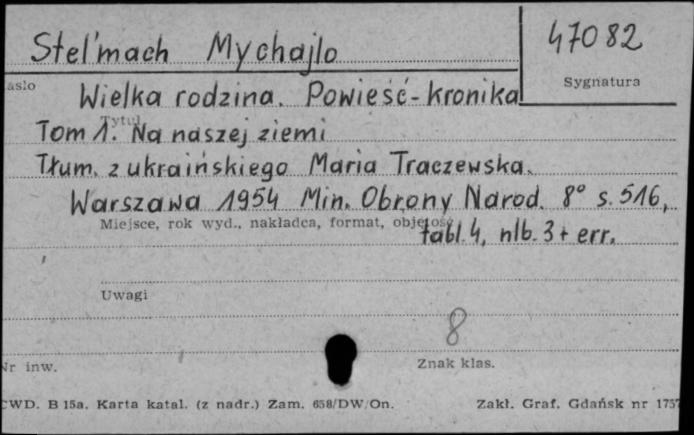 Stel'mach Mychajlo
47082
asło
Sygnatura
Wielka rodzina. Powieść-kronika
Tytuł
Tom 1. Na naszej ziemi
Tłum. z ukraińskiego Maria Traczewska.
Warszawa 1954 Min. Obrony Narod. 8° s. 516,
Miejsce, rok wyd., nakładca, format, objętość
tabl. 4, nlb. 3 + err.
Uwagi
8
Nr inw.
Znak klas.
CWD. B 15a. Karta katal. (z nadr.) Zam. 658/DW/On.
Zakł. Graf. Gdańsk nr 1757